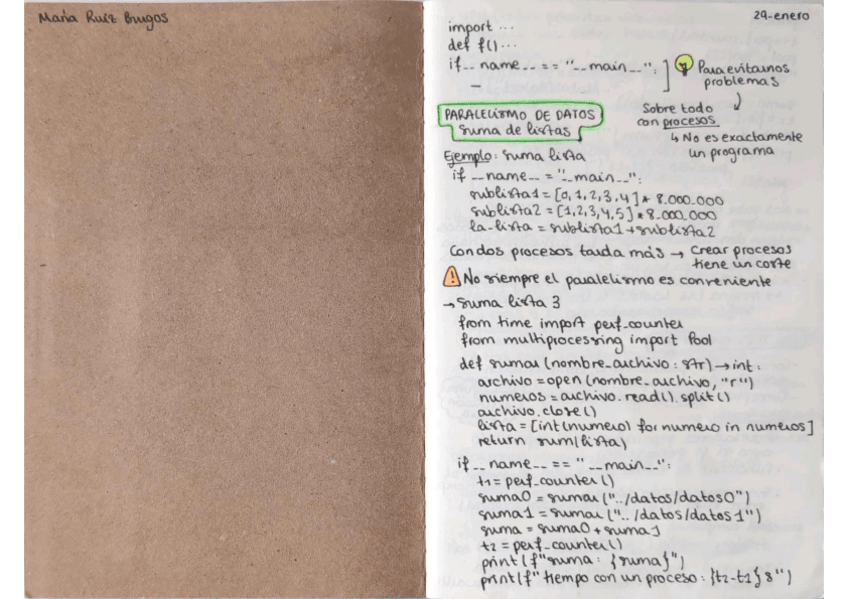 María Ruiz Burgos
29-enero
import ...
def f() ...
if __name__ == "__main__":
Para evitarnos
problemas
Sobre todo
con procesos
↳ No es exactamente
un programa
PARALELISMO DE DATOS
suma de listas
Ejemplo: suma lista
if __name__ = "__main__":
sublista1 = [0,1,2,3,4] * 8.000.000
sublista2 = [1,2,3,4,5] * 8.000.000
la-lista = sublista1 + sublista2
Con dos procesos tarda más → Crear procesos
tiene un coste
⚠ No siempre el paralelismo es conveniente
→ Suma lista 3
from time import perf_counter
from multiprocessing import Pool
def sumar (nombre_archivo: str) → int:
archivo = open (nombre_archivo, "r")
numeros = archivo.read().split()
archivo.close()
lista = [int(numero) for numero in numeros]
return sum(lista)
if __name__ == "__main__":
t1 = perf_counter()
suma0 = sumar ("../datos/datos0")
suma1 = sumar ("../datos/datos1")
suma = suma0 + suma1
t2 = perf_counter()
print(f"suma: {suma}")
print(f"tiempo con un proceso: {t2-t1} s")